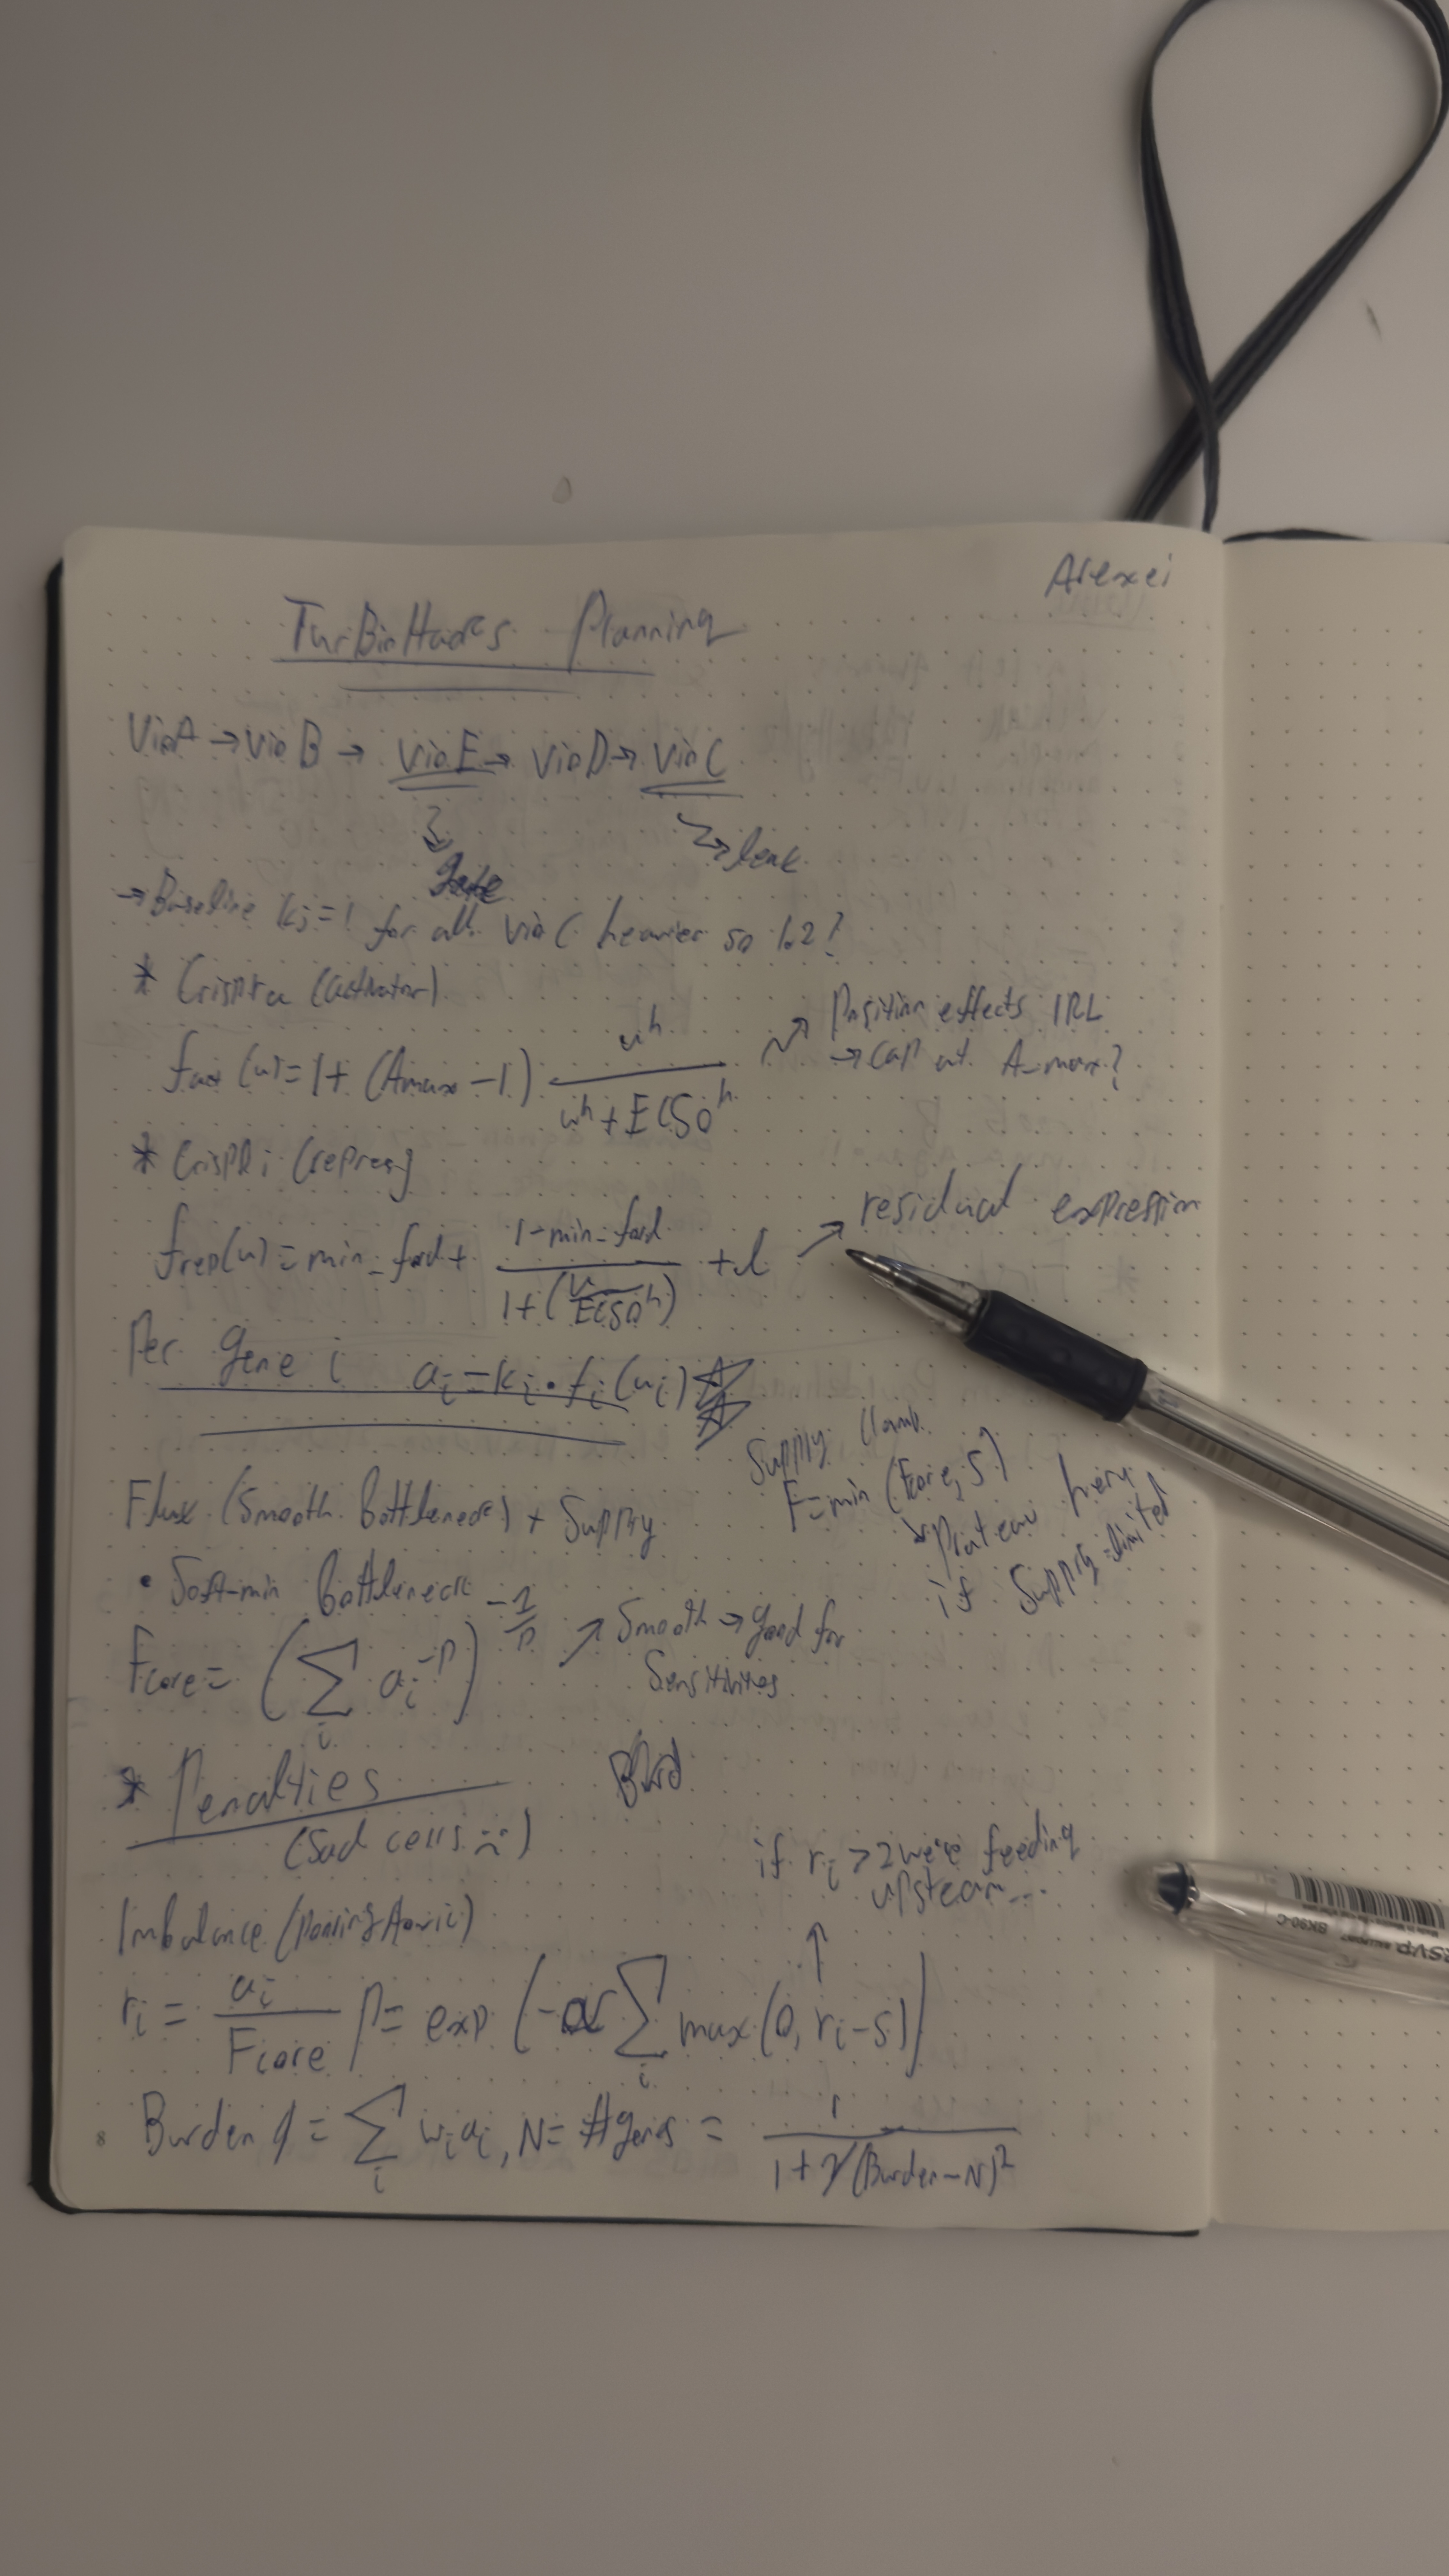 Alexei
TurBioHacks Planning
VioA → vio B → vio E → vio D → vio C
gate
leak
→ Baseline ki = 1 for all vio C heavier so 1.2?
* Crispra (activator)
fact (u) = 1 + (Amax - 1) u^h / (u^h + EC50^h)
Position effects IRL
→ cap at A_max?
* CRISPRi (repres)
frep(u) = min_fold + (1 - min_fold) / (1 + (u/EC50^h)) + l
residual expression
Per gene i ai = ki · fi(ui)
Flux (Smooth bottleneck) + Supply
Supply clamp
F = min (Fcore, S)
plateau here
if supply-limited
• Soft-min bottleneck
Fcore = (∑i ai^-p)^-1/p
Smooth → good for
Sensitivities
* Penalties
(Sad cells :()
if ri > 2 we're feeding
upstream...
Imbalance
ri = ai / Fcore P = exp (-α ∑i max(0, ri - s))
Burden = ∑i wi ai, N = # genes = 1 / (1 + γ(Burden - N)^2)
8
RSVP
BK90-C